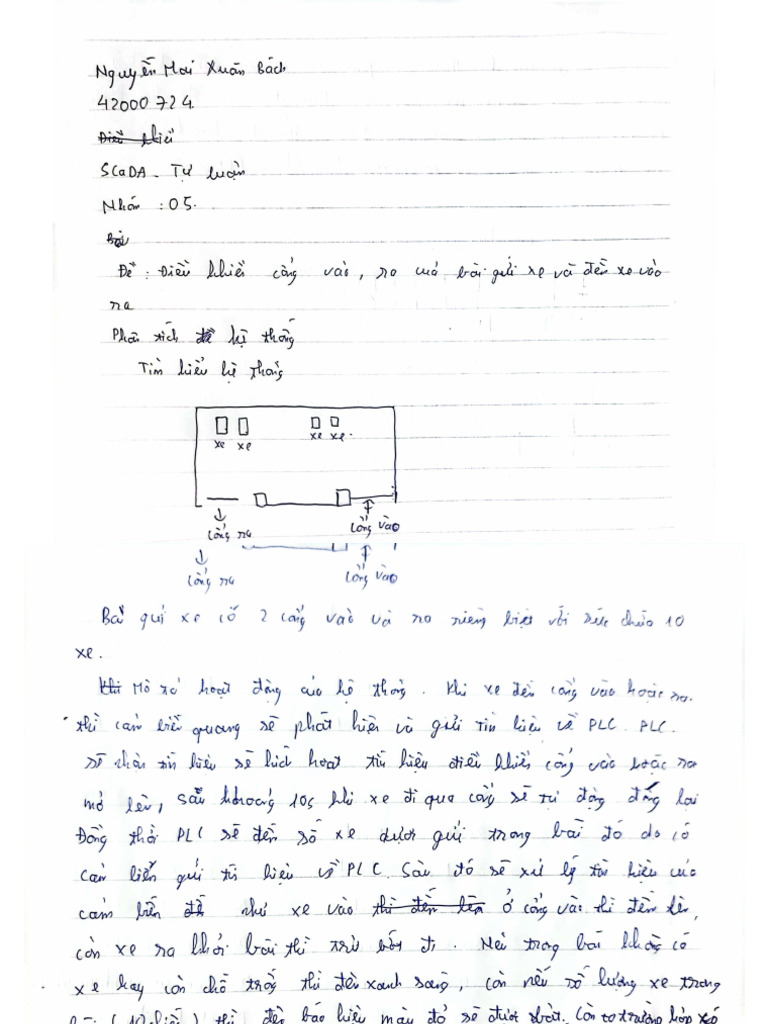 Nguyễn Mai Xuân Bách
42000724.
Điều khiể
SCaDA - Tự luận
Nhóm : 05.
Bài
Đề : Điều khiển cổng vào, ra của bãi gửi xe và đếm xe vào
ra
Phân tích đề hệ thống
Tìm hiểu hệ thống
xe xe xe xe.
Cổng ra Cổng vào
Cổng ra Cổng vào
Bãi gửi xe có 2 cổng vào và ra riêng biệt với sức chứa 10
xe.
Khi Mô tả hoạt động của hệ thống. Khi xe đến cổng vào hoặc ra.
thì cảm biến quang sẽ phát hiện và gửi tín hiệu về PLC. PLC.
sẽ nhận tín hiệu sẽ kích hoạt tín hiệu điều khiển cổng vào hoặc ra
mở lên, sau khoảng 10s khi xe đi qua cổng sẽ tự động đóng lại
Đồng thời PLC sẽ đếm số xe được gửi trong bãi đó do có
cảm biến gửi tín hiệu về PLC. Sau đó sẽ xử lý tín hiệu của
cảm biến để như xe vào thì đếm lên ở cổng vào thì đếm lên,
còn xe ra khỏi bãi thì trừ bớt đi. Nếu trong bãi không có
xe hay còn chỗ trống thì đèn xanh sáng, còn nếu số lượng xe trong
thì đèn báo hiệu màu đỏ sẽ được bật. Còn trường hợp